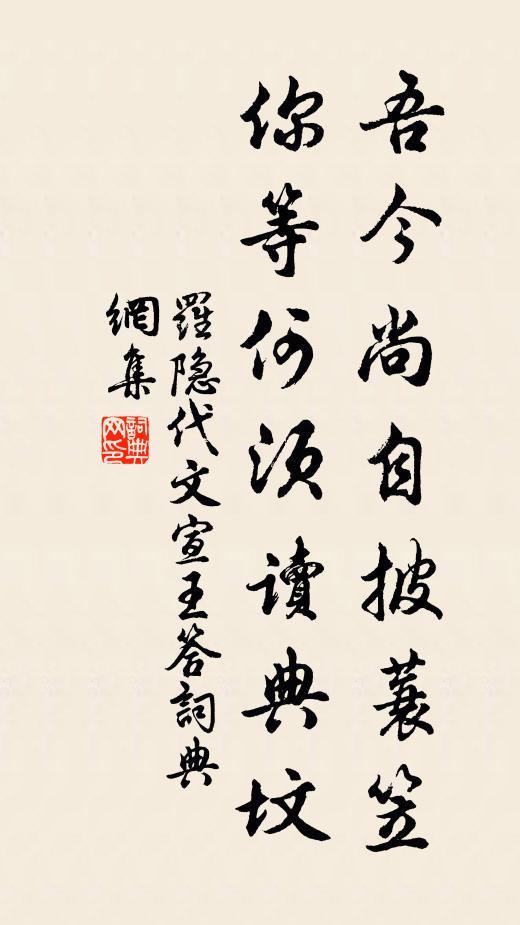 吾今尚自披蓑笠
你等何须讀典坟
羅隐代文宣王答詞典
網集
詞典
网印